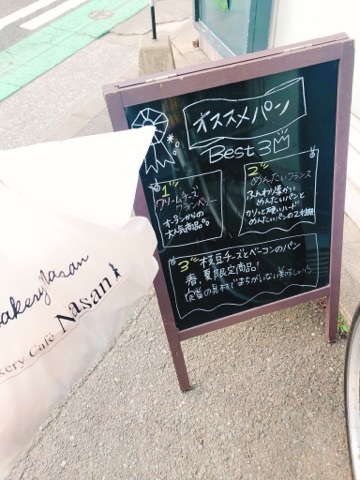 オススメパン
Best3
1
クリームチーズ
クランベリー
オープンからの
大人気商品。
2
めんたいフランス
ふんわり柔かい
めんたいパンと
カリッと硬いハード
めんたいパンの2種類
3 枝豆チーズとベーコンのパン
春、夏限定商品
定番の具材でまちがいない美味しいパン
bakery Nasan
Bakery Café Nasan